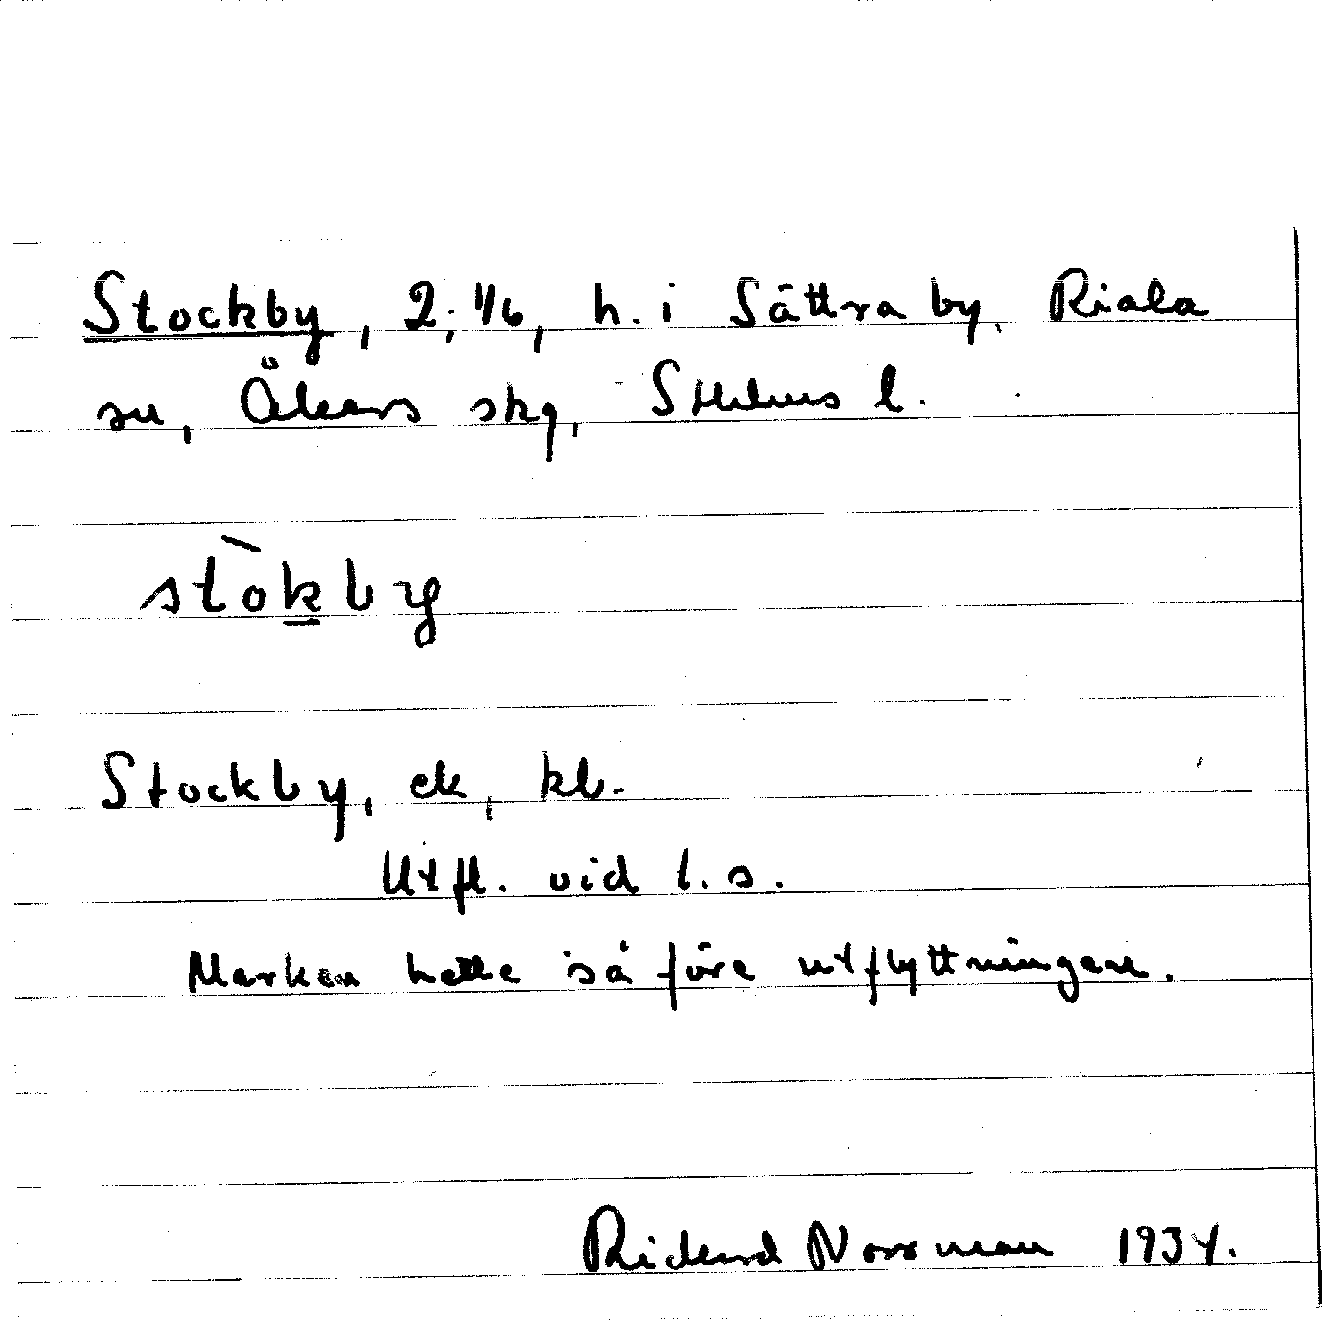 Stockby, 2; 1/6, h. i Sättra by, Riala
sn, Åkers skg, Sthlms l.
stòkby
Stockby, ek, kb.
Utfl. vid l. s.
Marken hette så före utflyttningen.
Rickard Norrman 1934.